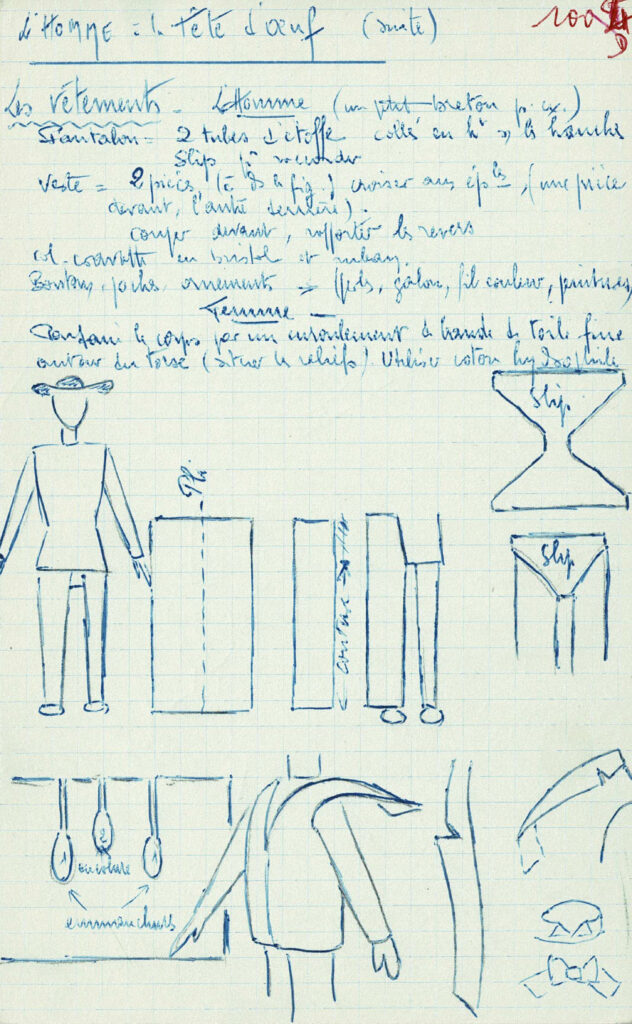 L'HOMME à la tête d'œuf (suite)
100
D
Les vêtements - L'Homme (un petit breton p. ex.)
Pantalon = 2 tubes d'étoffe collés en ht, les hanches
Slip pr raccorder
Veste = 2 pièces, (c. ds la fig.) croiser aux éples, (une pièce
devant, l'autre derrière).
couper devant, rapporter les revers
col. cravate en bristol et ruban.
Boutons, poches ornements = galon, fil couleur, peintures,
Femme -
le corps par un enroulement de bande de toile fine
autour du torse (situer les reliefs). Utiliser coton hydrophile
Slip
Pli
couture
Slip
1 2 1
encolure
emmanchures